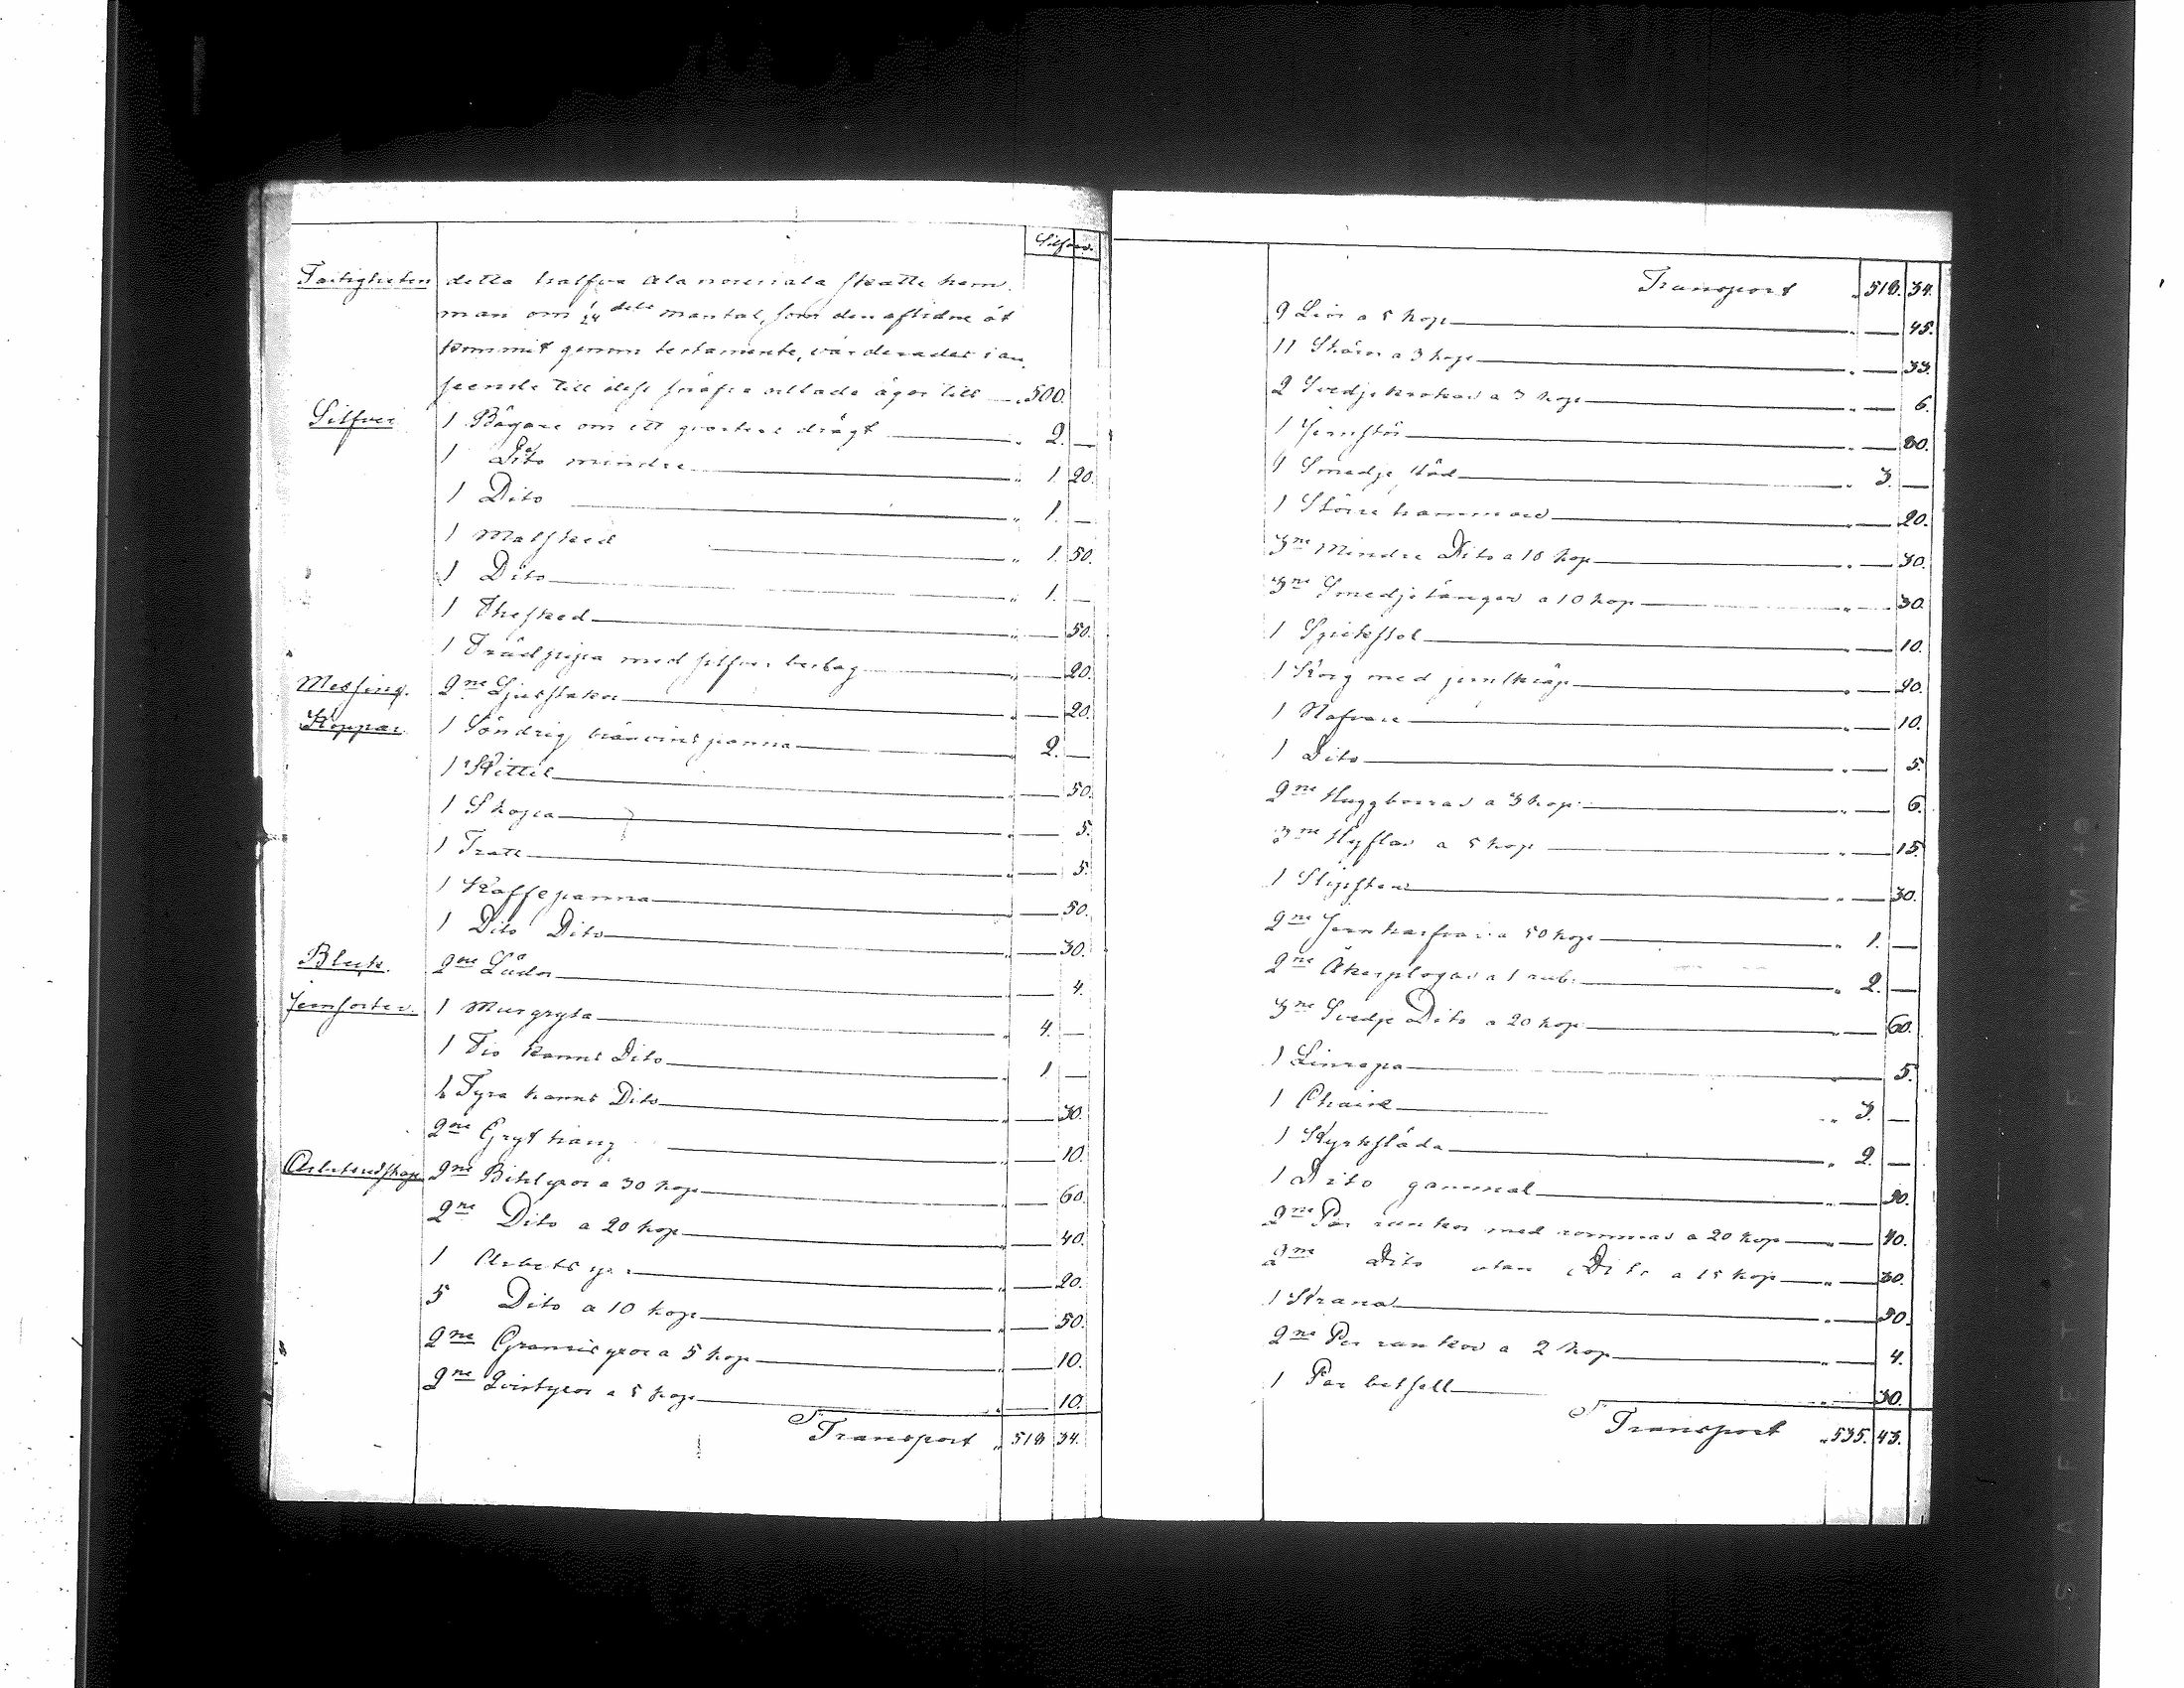 Silfver.
Fastigheten detta halfva Ala noueriala skatte hem-
man om 1/24 dels mantal, som den aflidne åt
kommit genom testamente, värderades i an-
seende till dess svåra villade ägor till 500.
Silfver 1 Bägare om ett qvarters drägt " 2. —
1 Dito mindre " 1. 20.
1 Dito " 1. —
1 Matsked " 1. 50.
1 Dito " 1. —
1 Thesked " — 50.
1 Trädpipa med silfver beslag " — 20.
Messing. 2ne Ljusstakar " — 20.
Koppar. 1 Söndrig brännvins panna " 2. —
1 Kittel " — 50.
1 Skopa " — 5.
1 Tratt " — 5.
1 Kaffepanna " — 50.
1 Dito Dito " — 30.
Bleck. 2ne Lådor " — 4.
Jernsorter. 1 Murgryta " 4. —
1 Tio kanns Dito " 1 —
1 Fyra kanns Dito " — 30.
2ne Gryt häng " — 10.
Arbetsredskap 2ne Bihlyxor a 30 kop " — 60.
2ne Dito a 20 kop " — 40.
1 Arbets yxa " — 20.
5 Dito a 10 kop " — 50.
2ne Granris yxor a 5 kop " — 10.
2ne Qvistyxor a 5 kop " — 10.
Transport " 518 34.
Transport " 518. 34.
9 Liar a 5 kop " — 45.
11 Skäror a 3 kop " — 33.
2 Svedjekrokar a 3 kop " — 6.
1 Jernstör " — 80.
1 Smedje städ " 3. —
1 Större hammare " — 20.
3ne Mindre Dito a 10 kop " — 30.
3ne Smedjetänger a 10 kop " — 30.
1 " — 10.
1 Korg med jernskräp " — 20.
1 Nafvare " — 10.
1 Dito " — 5.
2ne Huggborrar a 3 kop " — 6.
3ne Hyflar a 5 kop " — 15.
1 Slipsten " — 30.
2ne Jern harfvar a 50 kop " 1. —
2ne Åkerplogar a 1 rub. " 2. —
3ne Svedje Dito a 20 kop " — 60.
1 Linrepa " — 5.
1 Chaise " 3. —
1 Kyrksläda " 2. —
1 Dito gammal " —
2ne Par med rommar a 20 kop " — 40.
2ne Dito utan Dito a 15 kop " — 30.
1 " —
2ne Par a 2 kop " — 4.
1 Par betsell " — 30.
Transport " 535. 43.